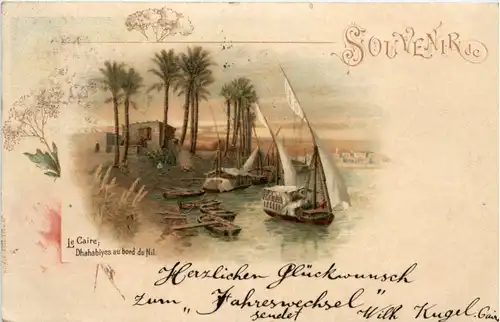 SOUVENIR de
Le Caire,
Dhahabiyes au bord du Nil.
Herzlichen Glückwunsch
zum „Jahreswechsel"
sendet Wilh Kugel. Cairo